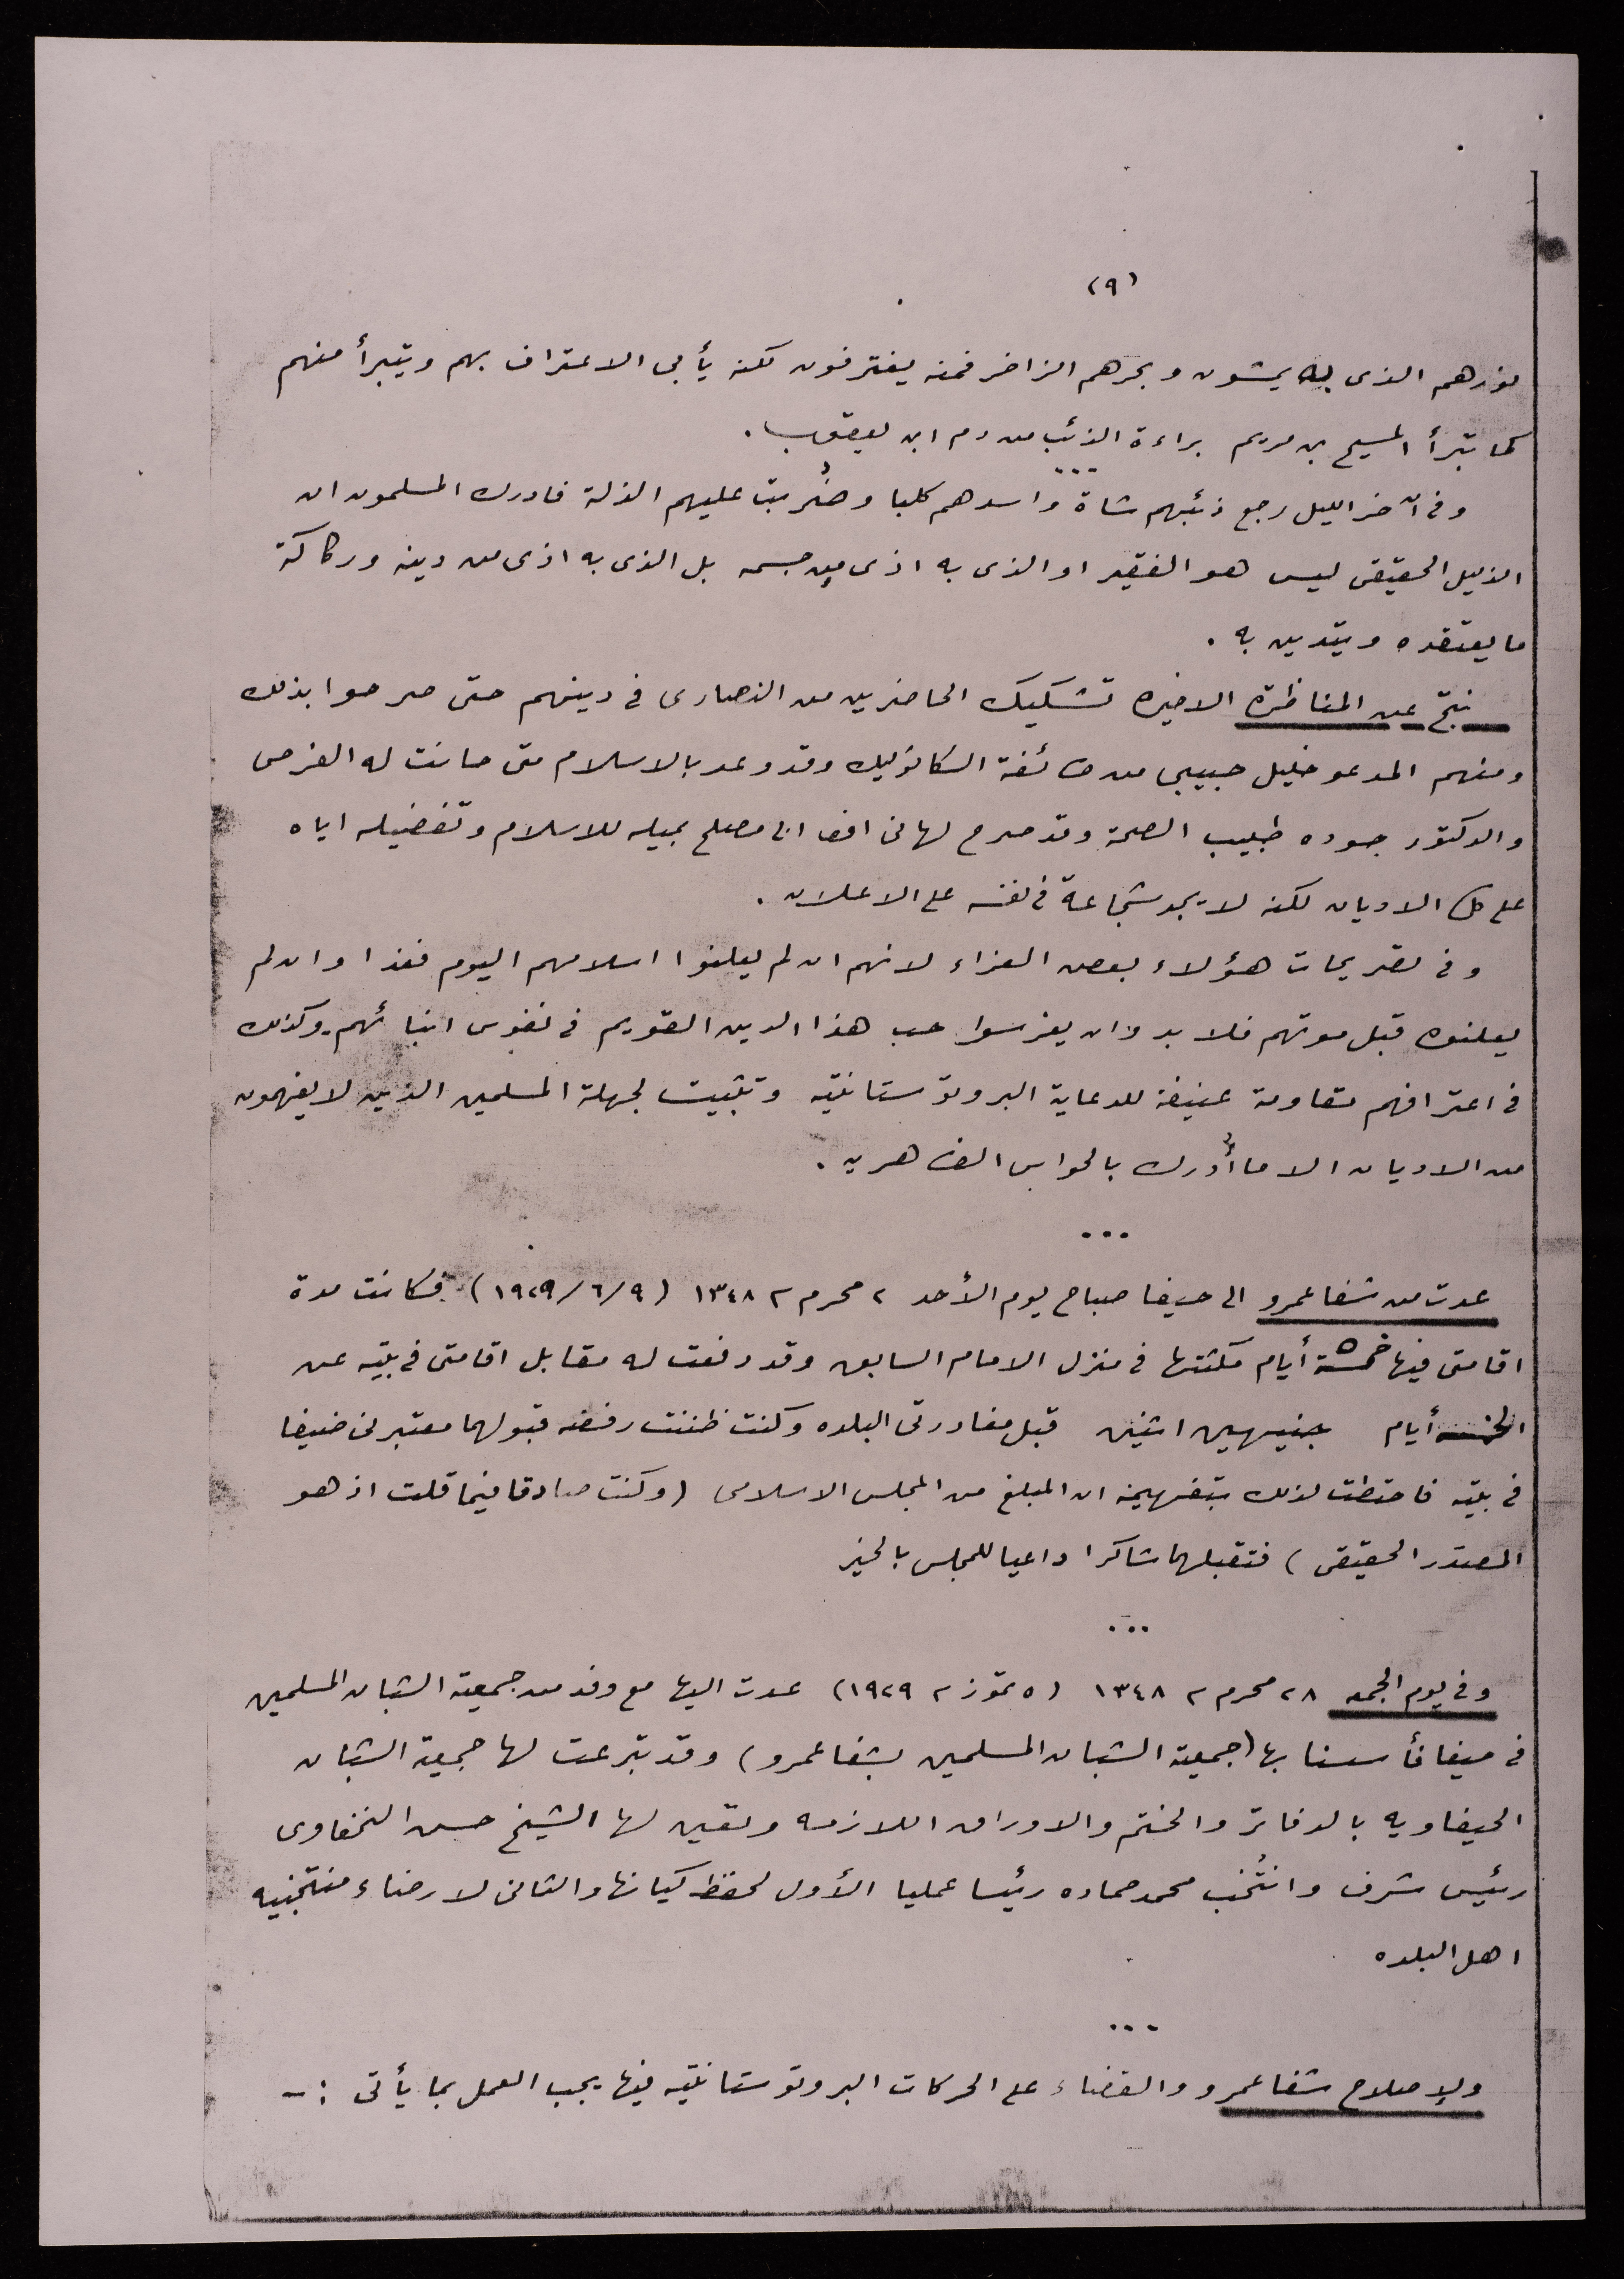 (٩)
نورهم الذى به يمشون وبحرهم الزاخر فمنه يغترفون لكنه يأبى الاعتراف بهم ويتبرأ منهم
كما تبرأ المسيح بن مريم براءة الذئب من دم ابن يعقوب .
...
وفى آخر الليل رجع ذئبهم شاة واسدهم كلبا وضُربت عليهم الذلة فادرك المسلمون ان
الذليل الحقيقى ليس هو الفقير او الذى به اذى من جسمه بل الذى به اذى من دينه وركاكة
ما يعتقده ويتدين به .
نتج عن المناظرة الاخيره تشكيك الحاضرين من النصارى فى دينهم حتى صرحوا بذلك
ومنهم المدعو خليل حبيبى من طائفة الكاثوليك وقد وعد بالاسلام متى حانت له الفرص
والدكتور جوده طبيب الصحة وقد صرح لهانى افندى ابى مصلح بميله للاسلام وتفضيله اياه
على كل الاديان لكنه لا يجد شجاعة فى نفسه على الاعلان .
وفى تصريحات هؤلاء بعض العزاء لانهم ان لم يعلنوا اسلامهم اليوم فغدا وان لم
يعلنوه قبل موتهم فلا بد وان يغرسوا حب هذا الدين القويم فى نفوس ابنائهم . وكذلك
فى اعترافهم مقاومة عنيفة للدعاية البروتوستانتيه وتثبيت لجهلة المسلمين الذين لا يفهمون
من الاديان الا ما أُدرك بالحواس الظاهريه .
...
عدت من شفاعمرو الى حيفا صباح يوم الأحد ٢ محرم ٢ ١٣٤٨ (١٩٢٩/٦/٩) فكانت مدة
اقامتى فيها خمسة أيام مكثتها فى منزل الامام السابق وقد دفعت له مقابل اقامتى فى بيته عن
الخمسة أيام جنيهين اثنين قبل مغادرتى البلده وكنت ظننت رفضه قبولهما معتبرنى ضيفا
فى بيته فاحتطت لذلك بتفهيمه ان المبلغ من المجلس الاسلامى (وكنت صادقا فيما قلت اذ هو
المصدر الحقيقى) فتقبلهما شاكرا داعيا للمجلس بالخير
...
وفى يوم الجمعه ٢٨ محرم ٢ ١٣٤٨ (٥ تموز ٢ ١٩٢٩) عدت اليها مع وفد من جمعية الشبان المسلمين
فى حيفا فأسسنا بها (جمعية الشبان المسلمين بشفاعمرو) وقد تبرعت لها جمعية الشبان
الحيفاويه بالدفاتر والختم والاوراق اللازمه وتعين لها الشيخ حسن النخفاوى
رئيس شرف وانتُخب محمد حماده رئيسا عمليا الأول لحفظ كيانها والثانى لارضاء منتخبيه
اهل البلده
...
ولإصلاح شفاعمرو والقضاء على الحركات البروتوستانتيه فيها يجب العمل بما يأتى :-